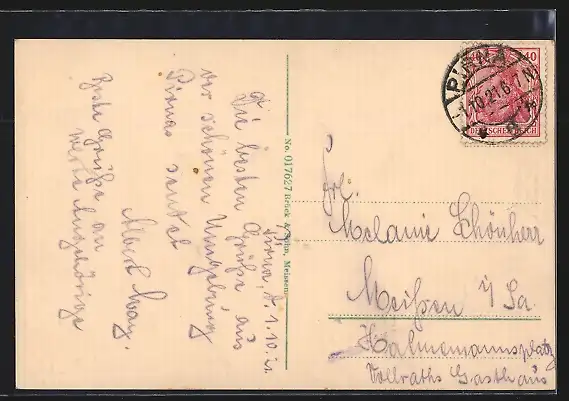 Pirna, d. 1.10.21.
Die besten Grüße aus
der schönen Umgebung
Pirnas sendet
Albert May.
Beste Grüße an
Werte Angehörige
No. 017627 Brück & Sohn, Meissen.
PIRNA
1.10.21.6-7 N
40
DEUTSCHES REICH
Frl.
Melanie Schönherr
Meißen i/Sa.
Hahnemannsplatz
Vollraths Gasthaus